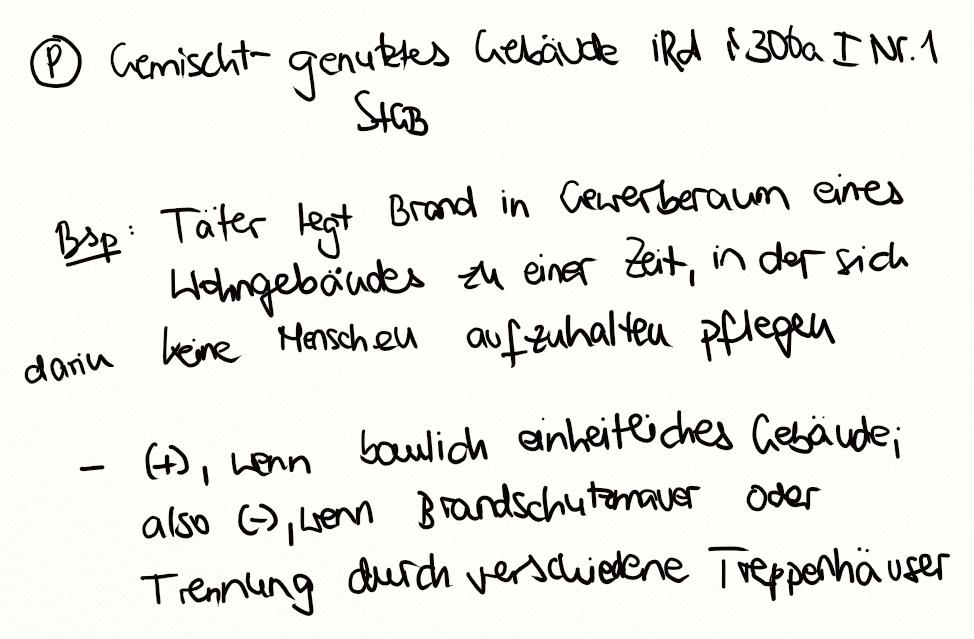 Ⓟ Gemischt-genutztes Gebäude iRd § 306a I Nr. 1
StGB
Bsp: Täter legt Brand in Gewerberaum eines
Wohngebäudes zu einer Zeit, in der sich
darin keine Menschen aufzuhalten pflegen
- (+), wenn baulich einheitliches Gebäude;
also (-), wenn Brandschutzmauer oder
Trennung durch verschiedene Treppenhäuser